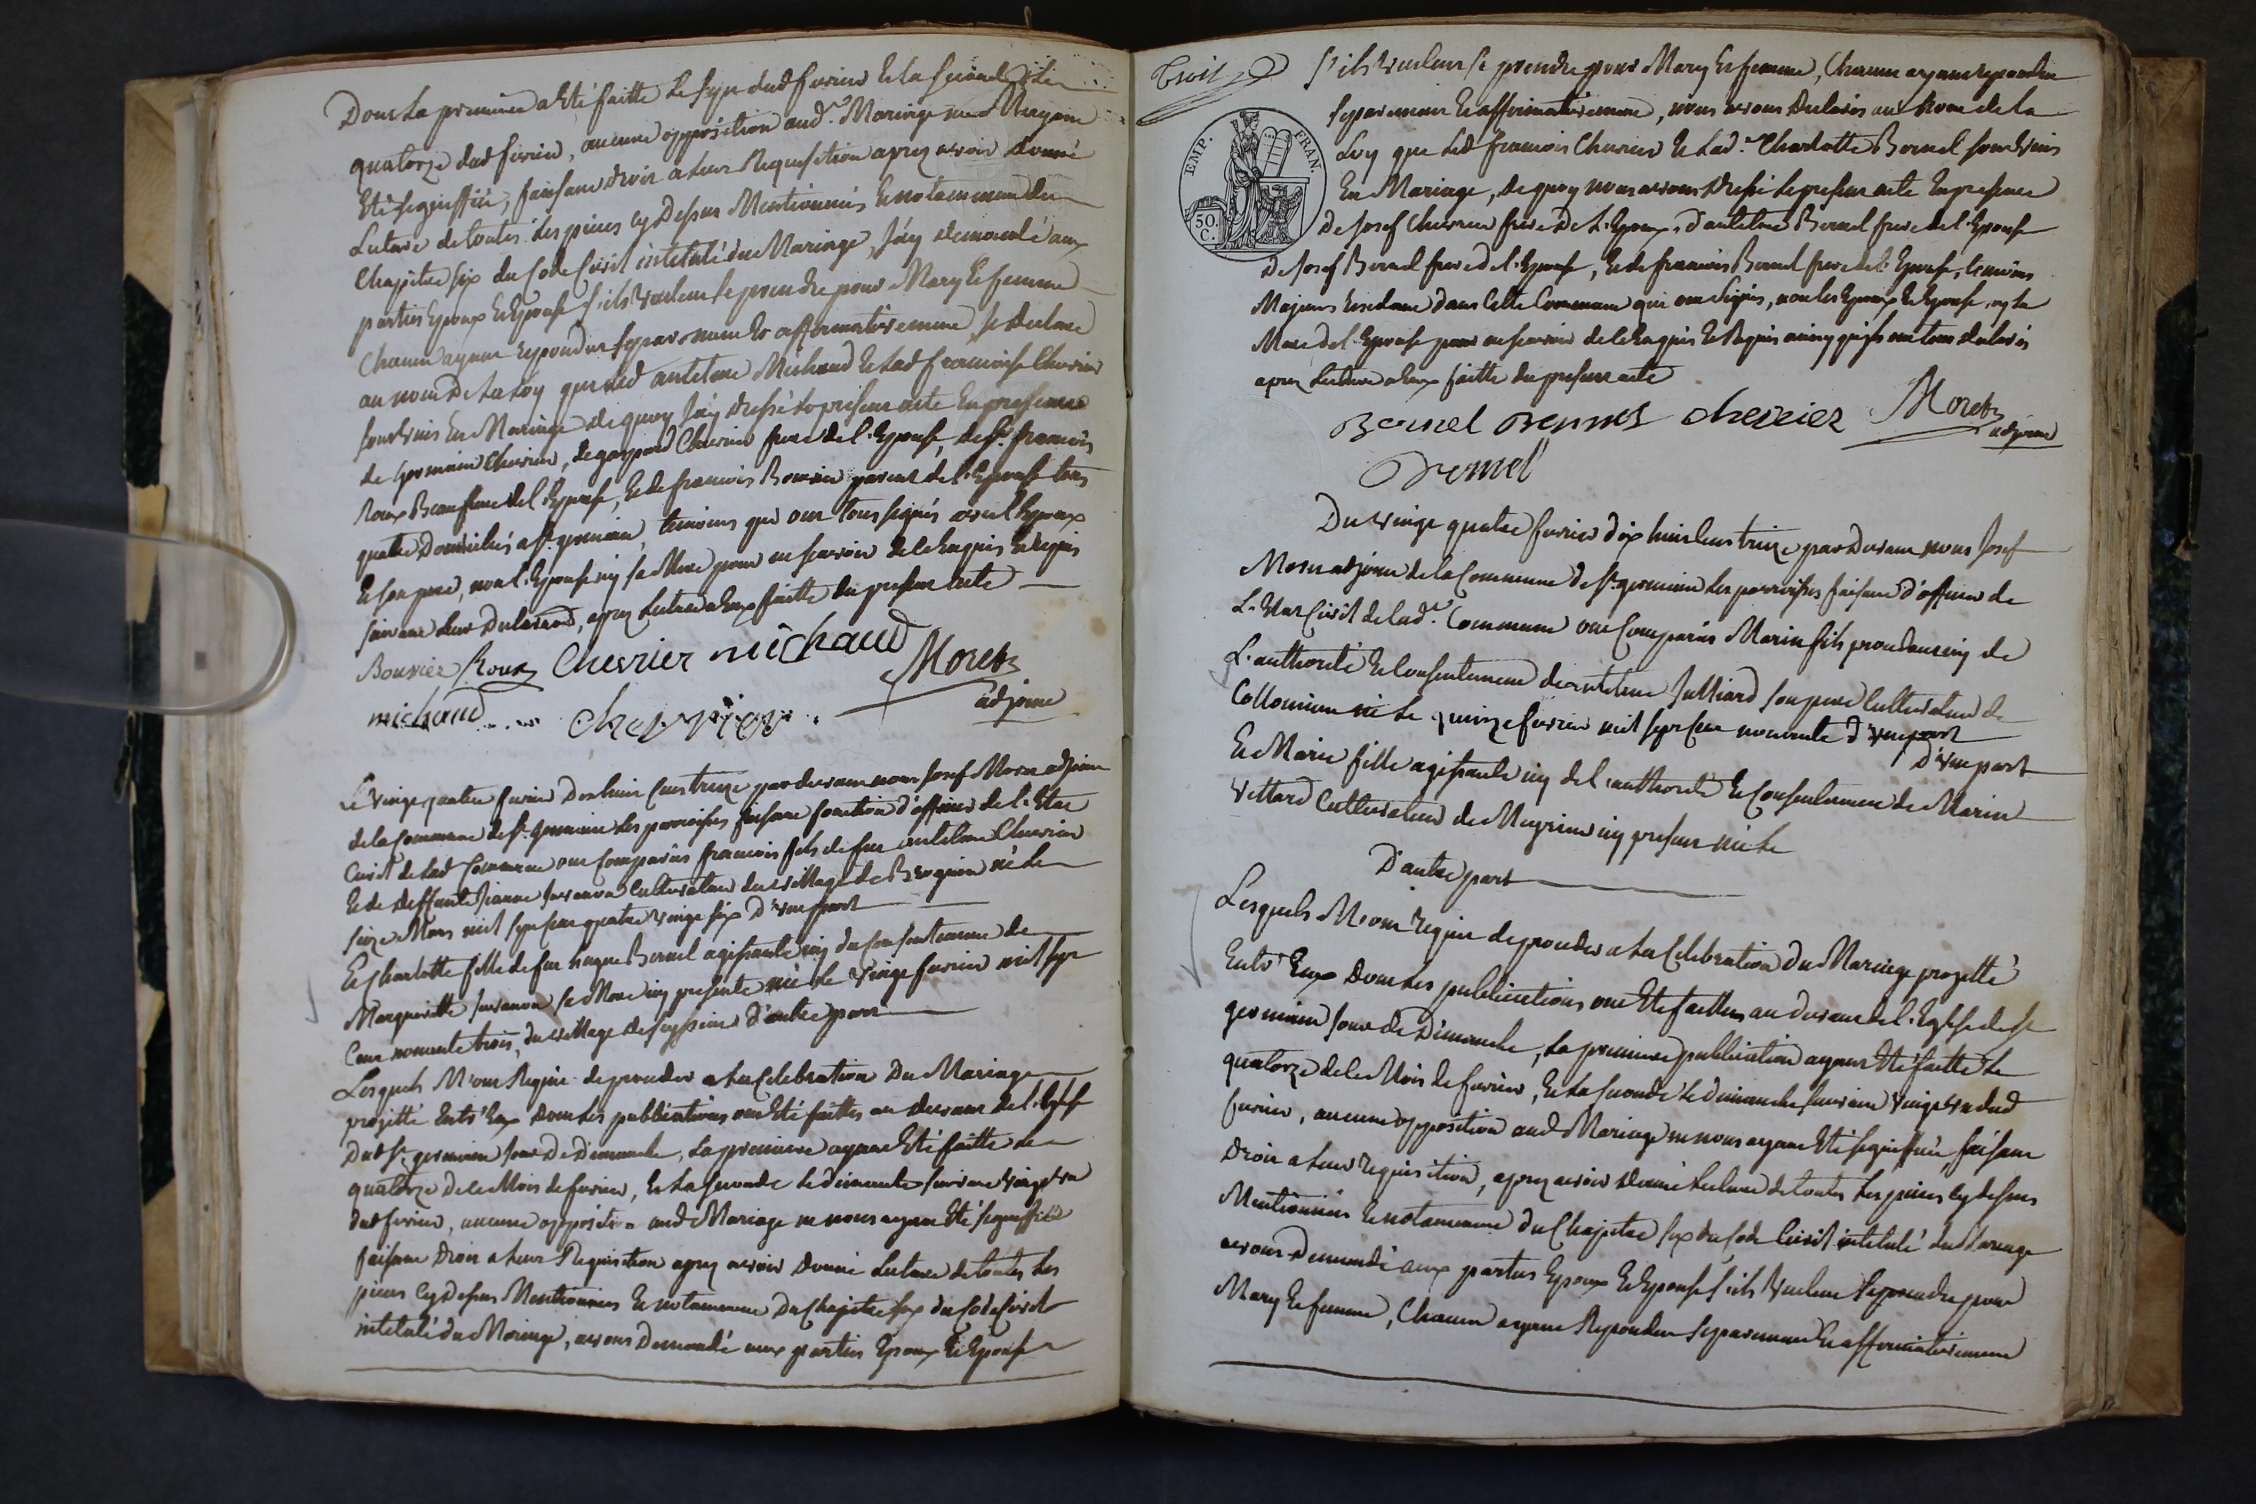 Dont la premiere a Eté faitte le sept dud fevrier Et la seconde Le
quatorze dud fevrier, aucune opposition aud.t Mariage ne M'ayant
Eté signiffiée, faisant droit a leur Requisition apres avoir donné
Lecture de toutes les pieces cy dessus Mentionnées Et notamment du
Chapitre six du Code Civil intitulé du Mariage, J'ay demandé aux
parties Epoux Et Epouse s'ils veulent se prendre pour Mary Et femme
Chacun ayant repondu separement Et affirmativement, Je declare
au nom de la Loy que led anteleme Michaud Et lad francoise Chevrier
sont Unis En Mariage de quoy J'ay dressé le present acte En presence
de germain Chevrier, de gaspard Chevrier frere de l'Epouse, de francois
Roux Beaufrere de l'Epouse, Et de francois Bouvier parent de l'Epouse tous
quatre Domiciliés a St. germain, temoins qui ont tous signés avec l'Epoux
Et son pere, non l'Epouse ny sa Mere pour ne scavoir de ce Enquis Et requis
suivant leur Declaration, apres lecture a Eux faitte du present acte
Bouvier Roux Chevrier michaud Moret
michaud chevrier adjoint
Le vingt quatre fevrier Dixhuit Cent treize pardevant nous Josef Moret adjoint
de la Commune de St. germain les parroisses faisant fonction d'officier de l'Etat
Civil de lad Commune ont Comparus francois fils de feu anteleme Chevrier
Et de deffunte Jeanne Cultivateur du village de né le
seize Mars mil sept cent quatre vingt six D'une part
Et Charlotte fille de feu Bernel agissante icy du Consentement de
Margueritte sa Mere icy presente née le vingt fevrier mil sept
Cent nonante trois, du village de d'autre part
Lesquels M'ont Requis de proceder a la Celebration Du Mariage
projetté Entr'Eux Dont les publications ont Eté faittes au devant de l'Eglise
Dud St. germain Jour De Dimanche, La premiere ayant Eté faitte Le
quatorze de ce Mois de fevrier, Et la seconde le dimanche suivant vingt un
dud fevrier, aucune opposition aud Mariage ne nous ayant Eté signiffiée
faisant Droit a leur Requisition apres avoir Donné Lecture de toutes Les
pieces cy dessus Mentionnées Et notamment Du Chapitre six du Code Civil
intitulé du Mariage, avons Demandé aux parties Epoux Et Epouse
Troit
s'ils veulent se prendre pour Mary Et femme, Chacun ayant repondu
separement Et affirmativement, nous avons declarés au Nom de la
Loy que led francois Chevrier Et lad.te Charlotte Bernel sont Unis
En Mariage, de quoy nous avons dressé le present acte En presence
De Josef Chevrier frere De l'Epoux, D'anteleme Bernel frere de l'Epouse
De Josef Bernel frere de l'Epouse, Et de francois Bernel frere de l'Epouse, temoins
Majeurs residant dans cette Commune qui ont signés, non les Epoux Et Epouse, ny la
Mere de l'Epouse pour ne scavoir de ce Enquis Et Requis ainsy qu'ils ont tous declarés
apres Lecture a Eux faitte du present acte
EMP. FRAN.
50. C.
Bernel chevrier Moret
adjoint
Du vingt quatre fevrier dix huit cent treize par Devant nous Josef
Moret adjoint de la Commune de St. germain les parroisses faisant d'officier de
L'Etat Civil de lad.te Commune ont Comparus Marin fils procedant icy de
L'authorité Et Consentement de anteleme Julliard son pere Cultivateur de
né Le quinze fevrier mil sept Cent nonante d'une part
D'une part
Et Marie fille agissante icy de l'authorité Et Consentement de Marin
Vittard Cultivateur de icy present née Le
D'autre part
Lesquels M'ont requis de proceder a La Celebration Du Mariage projetté
Entr' Eux Dont Les publications ont Eté faittes au devant de l'Eglise de St
germain Jour de Dimanche, La premiere publication ayant Eté faitte Le
quatorze de ce Mois de fevrier, Et La seconde Le dimanche suivant vingt un dud
fevrier, aucune opposition aud Mariage ne nous ayant Eté signiffiée, faisant
Droit a leur requisition, apres avoir Donné Lecture de toutes Les pieces cy dessus
Mentionnées Et notamment du Chapitre six du Code Civil intitulé du Mariage
avons Demandé aux parties Epoux Et Epouse s'ils veulent se prendre pour
Mary Et femme, Chacun ayant Repondu separement Et affirmativement